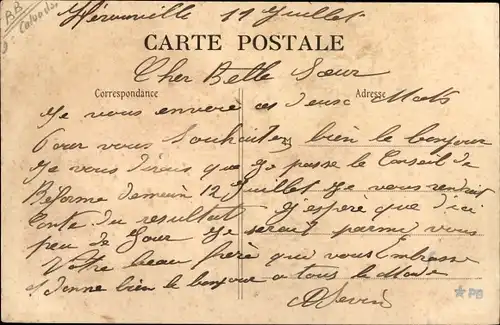 BB
Calvados
Hérouville 11 Juillet
CARTE POSTALE
Cher Belle Sœur
Correspondance
Adresse
Je vous envoie ces deux Mots
Pour vous Souhaiter bien le bonjour
Je vous dirais que Je passe le Conseil de
Reforme demain 12 Juillet Je vous rendrait
Conte du resultat J'espère que d'ici
peu de Jour Je serait parmi vous
Votre beau frère qui vous Embrasse
et donne bien le bonjour a tous le Monde
PB